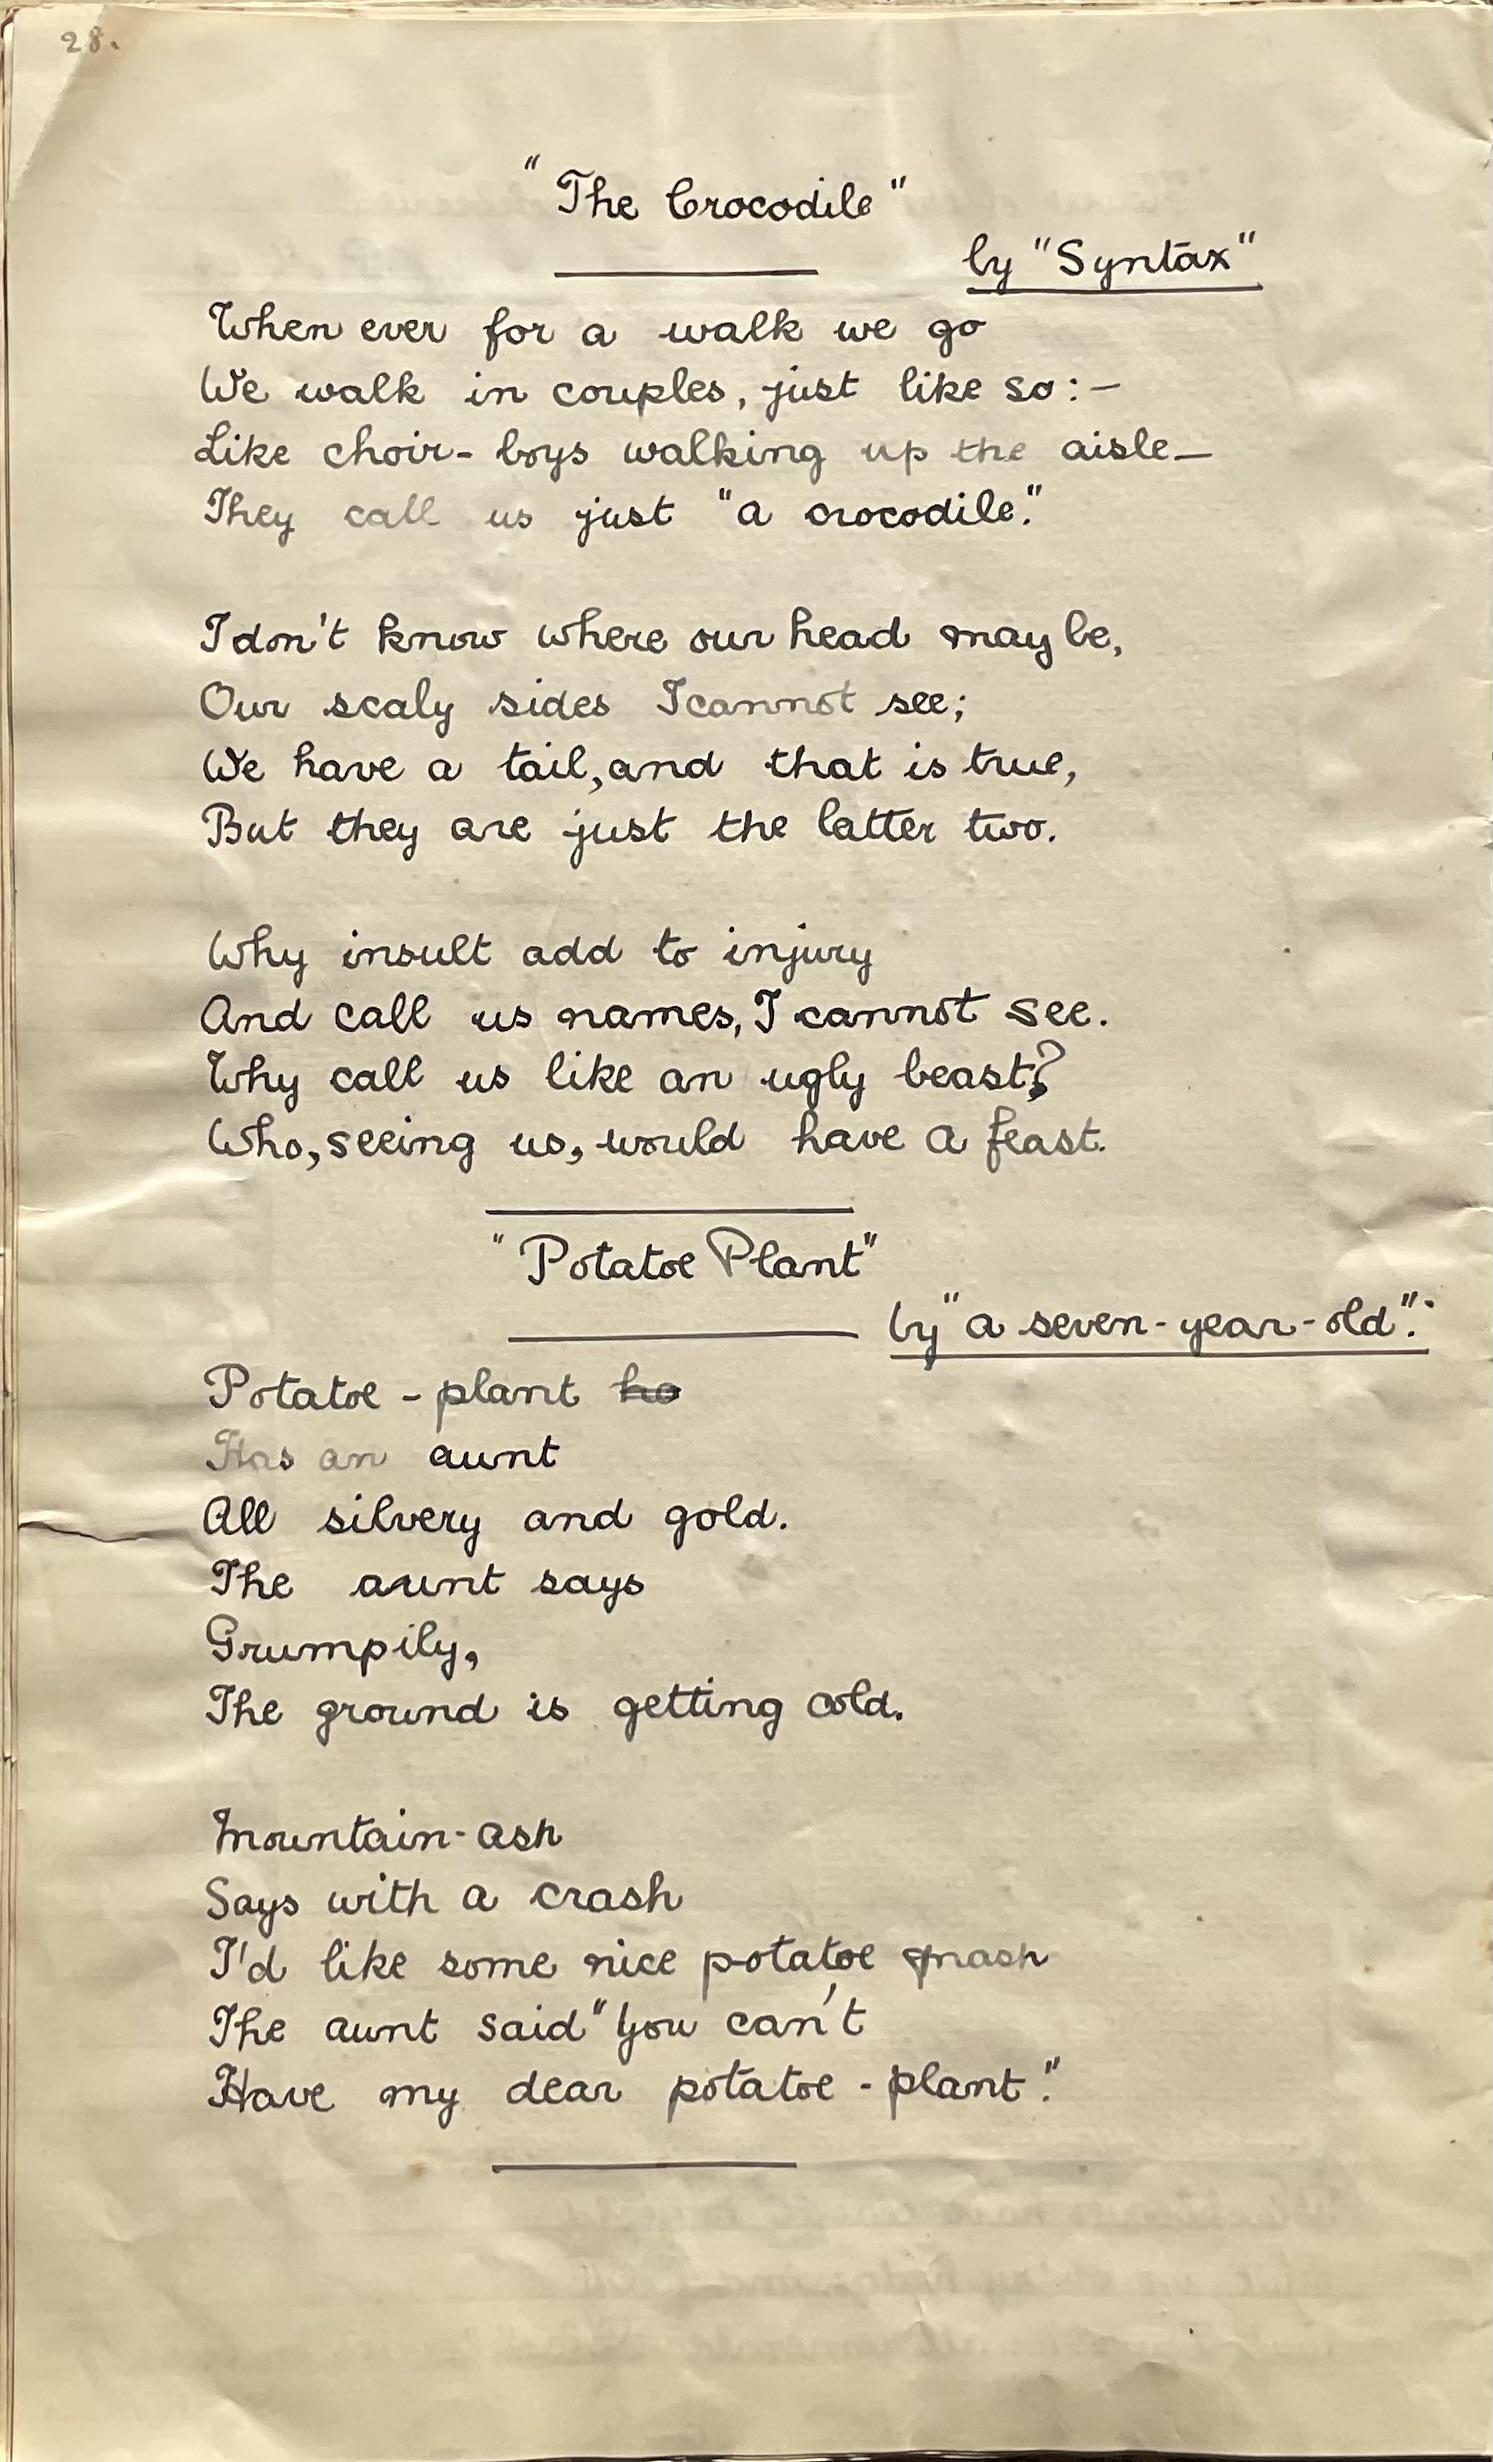 28.
"The Crocodile"
by "Syntax"
When ever for a walk we go
We walk in couples, just like so:-
Like choir-boys walking up the aisle-
They call us just "a crocodile."
I don't know where our head may be,
Our scaly sides I cannot see;
We have a tail, and that is true,
But they are just the latter two.
Why insult add to injury
And call us names, I cannot see.
Why call us like an ugly beast?
Who, seeing us, would have a feast.
"Potatoe Plant"
by "a seven-year-old".
Potatoe-plant ho
Has an aunt
All silvery and gold.
The aunt says
Grumpily,
The ground is getting cold.
Mountain-ash
Says with a crash
I'd like some nice potatoe mash
The aunt said "You can't
Have my dear potatoe-plant."